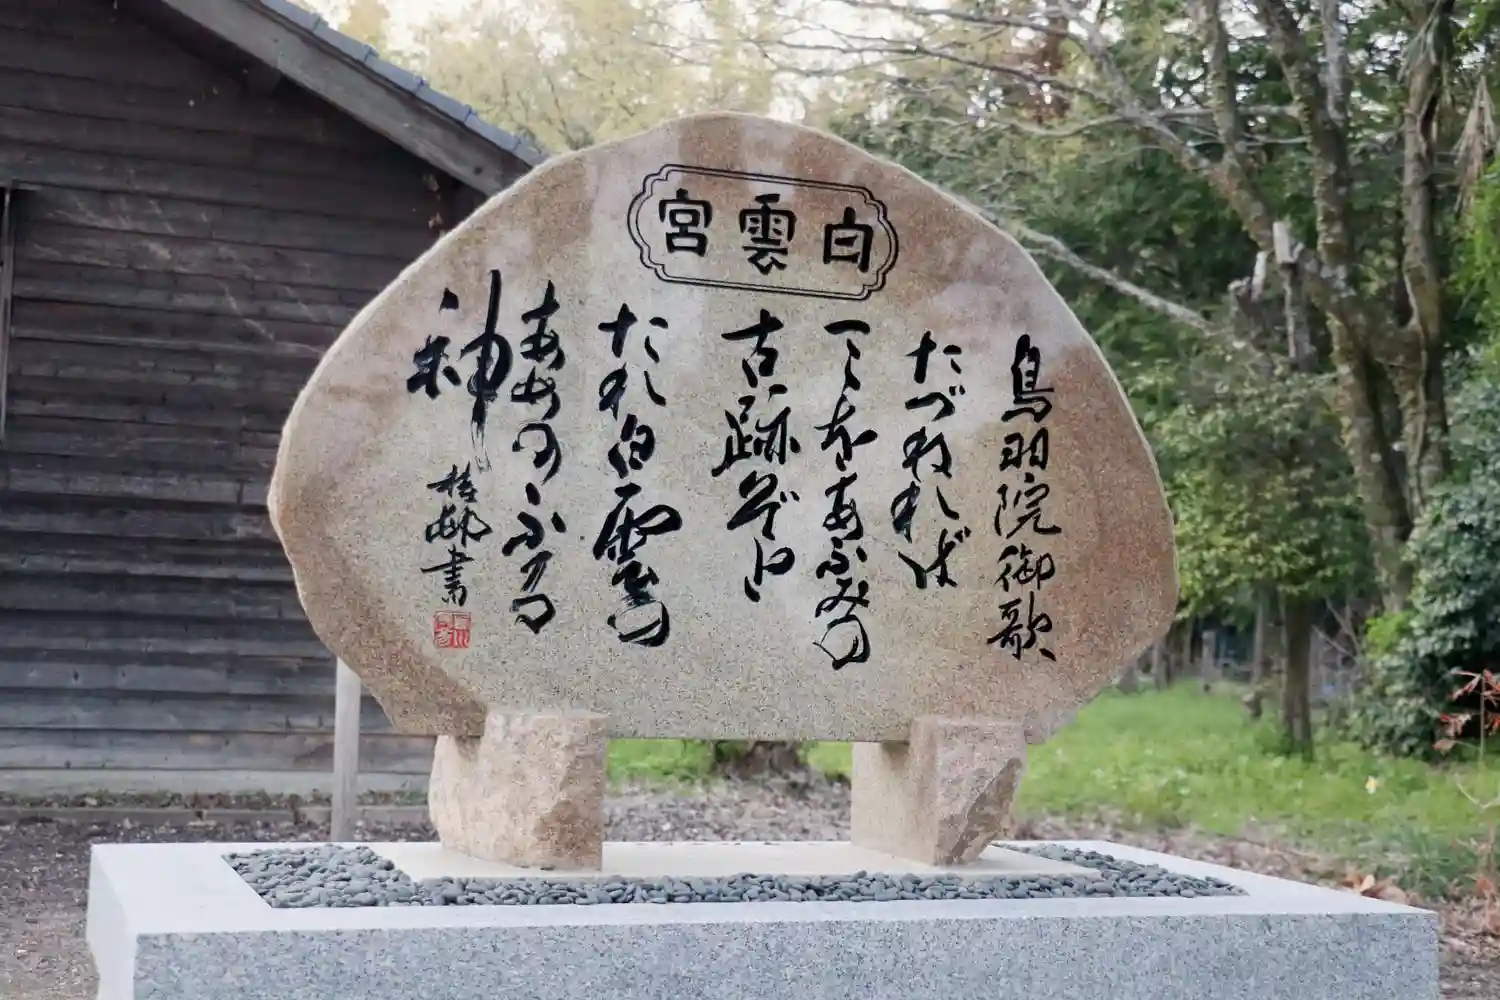 白雲宮
鳥羽院御歌
たづぬれば
こゝをあふみの
古跡ぞと
たれ白雲の
あめのふる
神
書